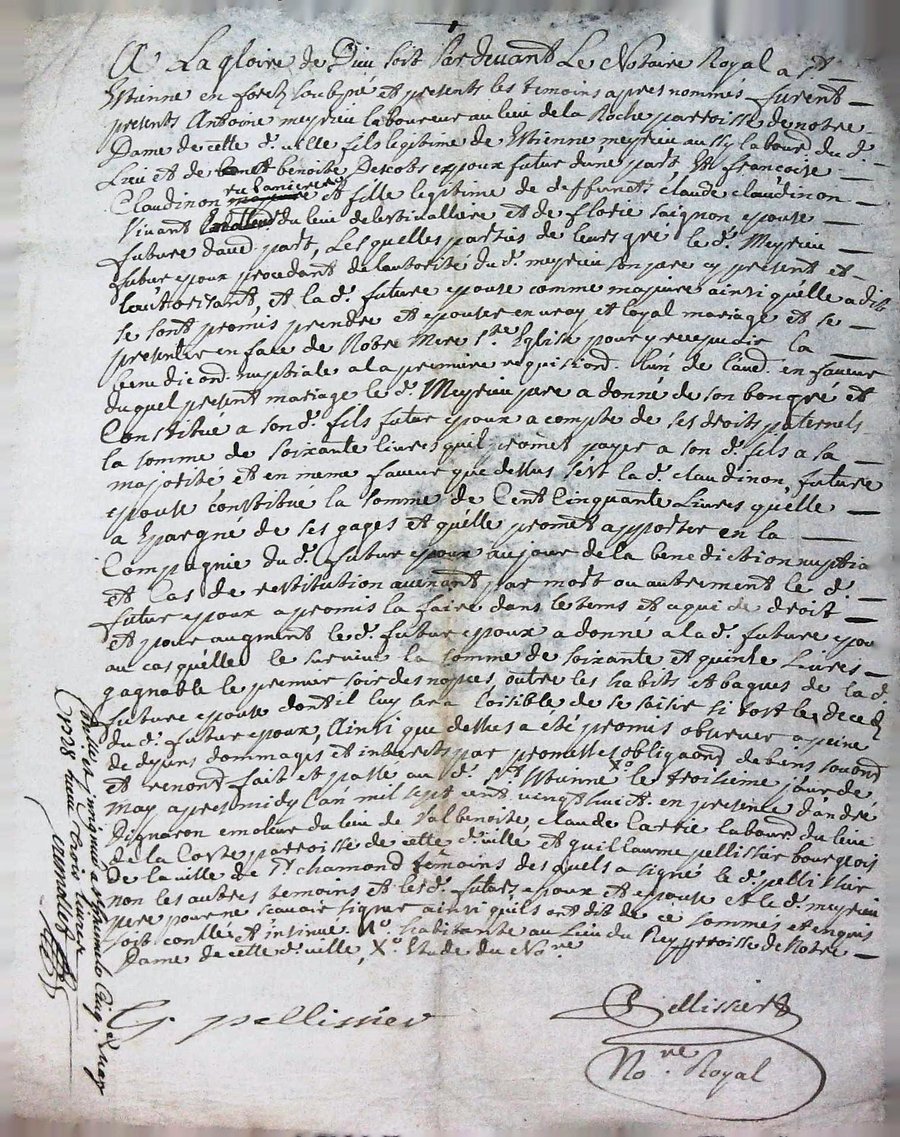 A La gloire de Dieu soit Pardevant Le Notaire Royal a St
Etienne en forest soubsné et presents les temoins apres nommés furent
presents Antoine meyrieu laboureur au lieu de la Roche parroisse de notre
Dame de cette d. ville fils legitime de Etienne meyrieu aussy labour. du d.
Lieu et de benoite Descots expoux futur dune part, Et francoise
rubaniere
Claudinon et fille legitime de deffunct claude claudinon
vivant du lieu de et de florie saignon epouse
future dautre part, Lesquelles parties de leurs gré le d. Meyrieu
futur epoux procedant de lautorité du d. meyrieu son pere cy present et
lautorisant, et la d. future epouse comme majeure ainsi quelle a dit
se sont promis prendre et epouser en vray et loyal mariage et se
presenter en face de Notre Mere ste Eglise pour y recepvoir la
benedicond. nuptiale a la premiere requisiond. Lun de laud. en faveur
duquel present mariage le d. Meyrieu pere a donné de son bon gré et
Constitue a son d. fils futur epoux a compte de ses droits paternels
la somme de soixante livres quil promet payer a son d. fils a sa
majorité et en meme faveur que dessus sest la d. claudinon, future
epouse constitué la somme de Cent Cinquante Livres quelle
a Epargné de ses gages et quelle promet apporter en la
Compagnie du d. futur epoux au jour de la benediction nuptia
et Cas de restitution avenant par mort ou autrement le d.
futur epoux a promis la faire dans le tems et a qui de droit
et pour augment le d. futur epoux a donné a la d. future epou
au cas quelle le survive la somme de soixante et quinze Livres
gagnable le premier soir des nopces outre les habits et bagues de la d.
future epouse dont il luy sera loisible de se saisir si tost le deced
du d. futur epoux, Ainsi que dessus a été promis observer a peine
de depens dommages et interets par promesses obligaond de biens
et renond fait et passé au d. St Etienne Xo le troisieme jour de
may apres midy Lan mil sept cent vingt huict en presence d'andré
vignaron emoleur du lieu de valbenoite claude Carrie labour. du lieu
de la Coste parroisse de cette d. ville et guillaume pellissier bourgeois
de la ville de St chamond temoins desquels a signé le d. pellissier
non les autres temoins et les d. futurs epoux et epouse et le d. meyrieu
pere pour ne scavoir signer ainsi quils ont dit de ce sommés et enquis
soit contllé et insinué No. habitante au Lieu du Rey prroisse de Notre
Dame de cette d. ville, Xo. Etude du Nore
G. pellissier
Pellissier
Nore Royal
may
1728 livres